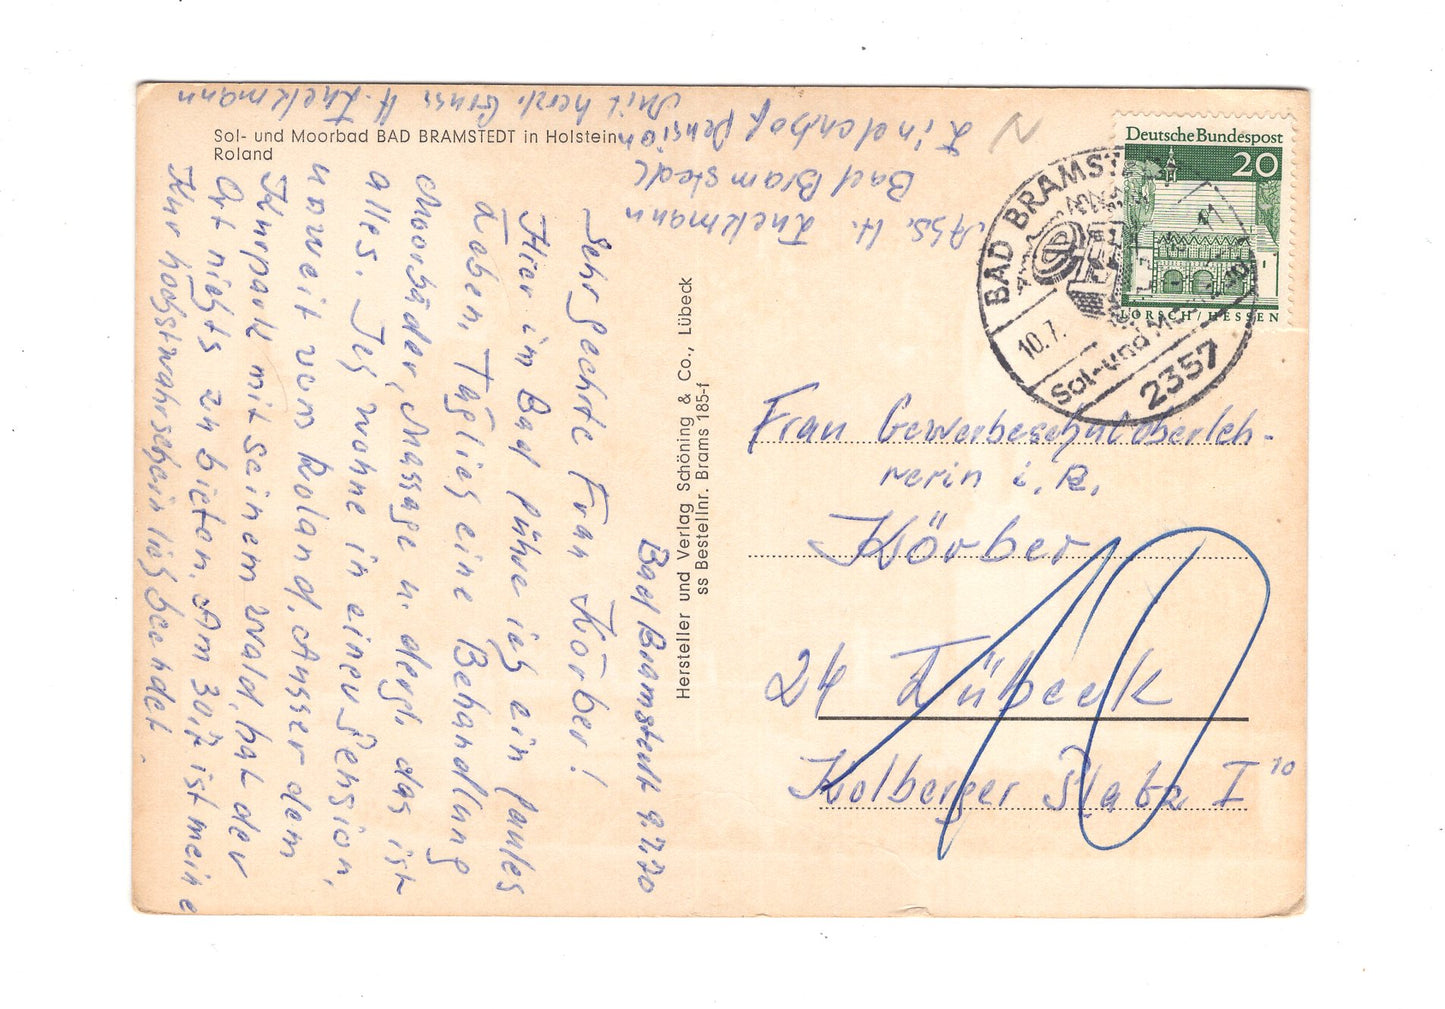 Sol- und Moorbad BAD BRAMSTEDT in Holstein
Roland
Bad Bramstedt 9.7.70
Sehr geehrte Frau Körber!
Hier im Bad führe ich ein faules
Leben. Täglich eine Behandlung
Moorbäder, Massage u. dergl. das ist
alles. Ich wohne in einer Pension,
unweit vom Roland. Ausser dem
Kurpark mit seinem Wald, hat der
Ort nichts zu bieten. Am 30.7. ist meine
Kur höchstwahrscheinlich beendet.
Mit herzl. Gruss H.
Abs. H.
Bad Bramstedt
Lindenhof Pension
Hersteller und Verlag Schöning & Co., Lübeck
ss Bestellnr. Brams 185-f
Deutsche Bundespost
20
LORSCH/HESSEN
BAD BRAMSTEDT
10.7.
Sol- und Moor
2357
Frau Gewerbeschuloberleh-
rerin i. R.
Körber
24 Lübeck
Kolberger Platz I 10
10